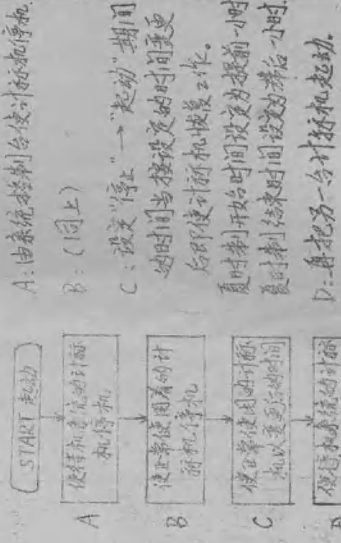 START 起动
A
使待机系统的计标
机停机
B
使正常使用着的计
标机停机
C
使正常使用的计标
机以变更后的时间
D
使待机系统的计标
A：由系统控制台使计标机停机.
B：（同上）
C：设定“停止”→“起动”期间
的时间当按设定的时间变更
后即使计标机恢复工作。
夏时制开始时间设定为提前一小时
夏时制结束时间设定为滞后一小时.
D：再把另一台计标机起动.